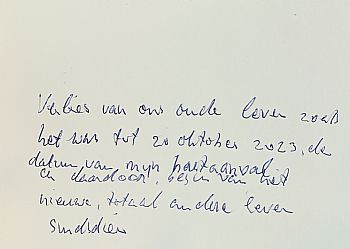 Verlies van ons oude leven zoals
het was tot 20 oktober 2023, de
datum van mijn hartaanval
en daardoor, begin van het
nieuwe, totaal andere leven
sindsdien